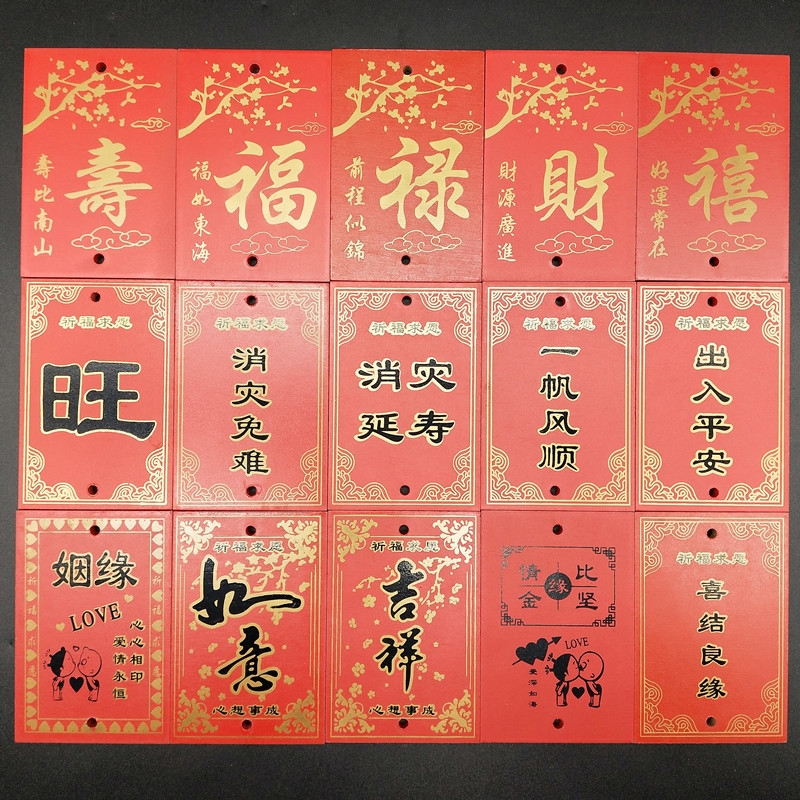 壽
壽比南山
福
福如東海
禄
前程似錦
財
財源廣進
禧
好運常在
祈福求愿
旺
祈福求愿
消灾免难
祈福求愿
消灾
延寿
祈福求愿
一帆风顺
祈福求愿
出入平安
姻缘
LOVE
心心相印
爱情永恒
祈福求愿
祈福求愿
祈福求愿
如意
心想事成
祈福求愿
吉祥
心想事成
情比
缘
金坚
LOVE
爱深如海
祈福求愿
喜结良缘